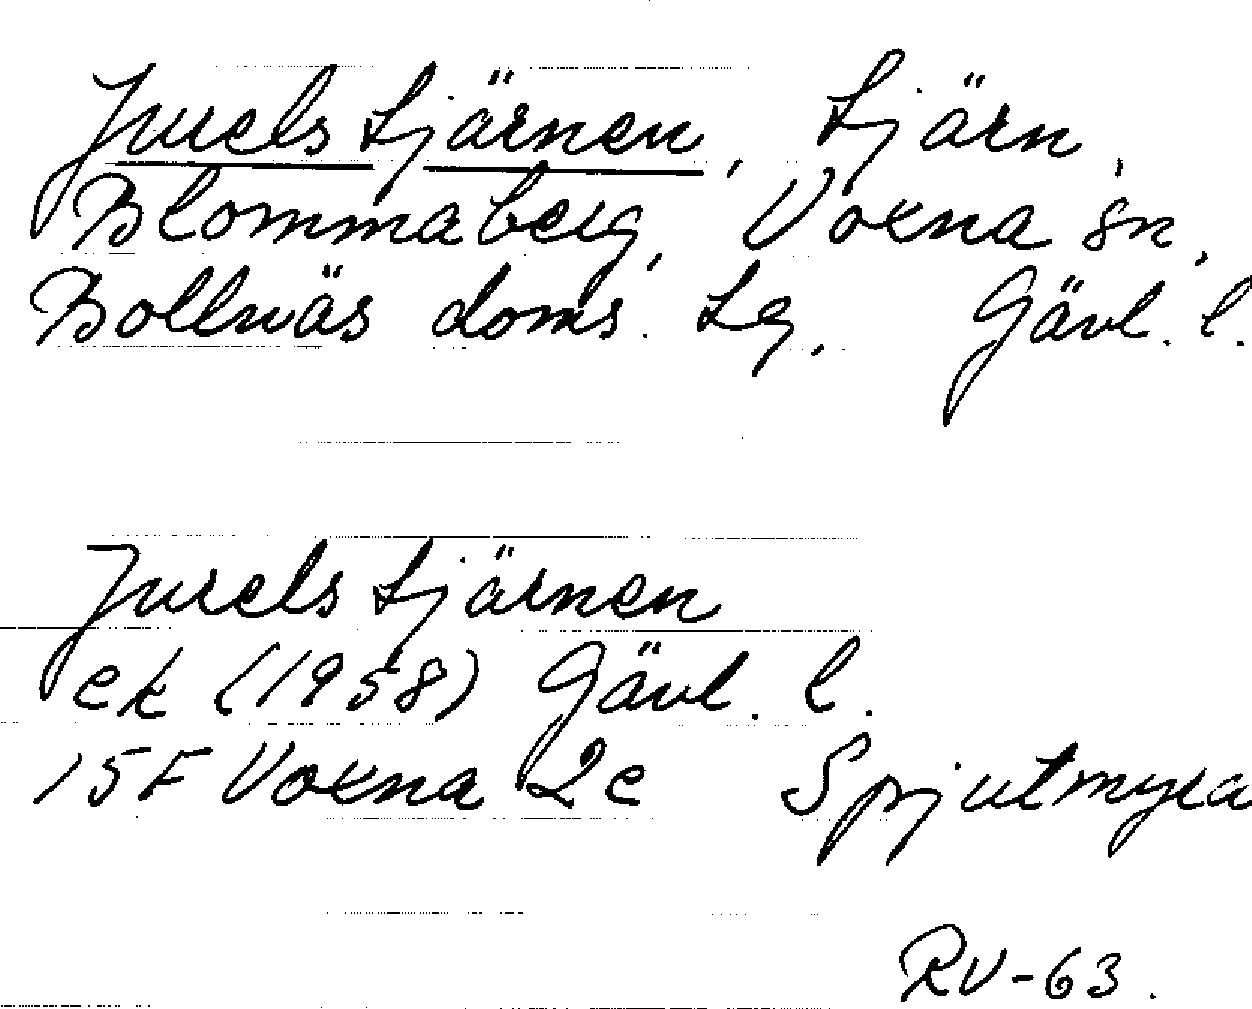 Jurelstjärnen, tjärn,
Blommaberg, Voxna sn,
Bollnäs doms. lg, Gävl. l.
Jurelstjärnen
ek (1958) Gävl. l.
15F Voxna 2c Spjutmyra
RV-63.